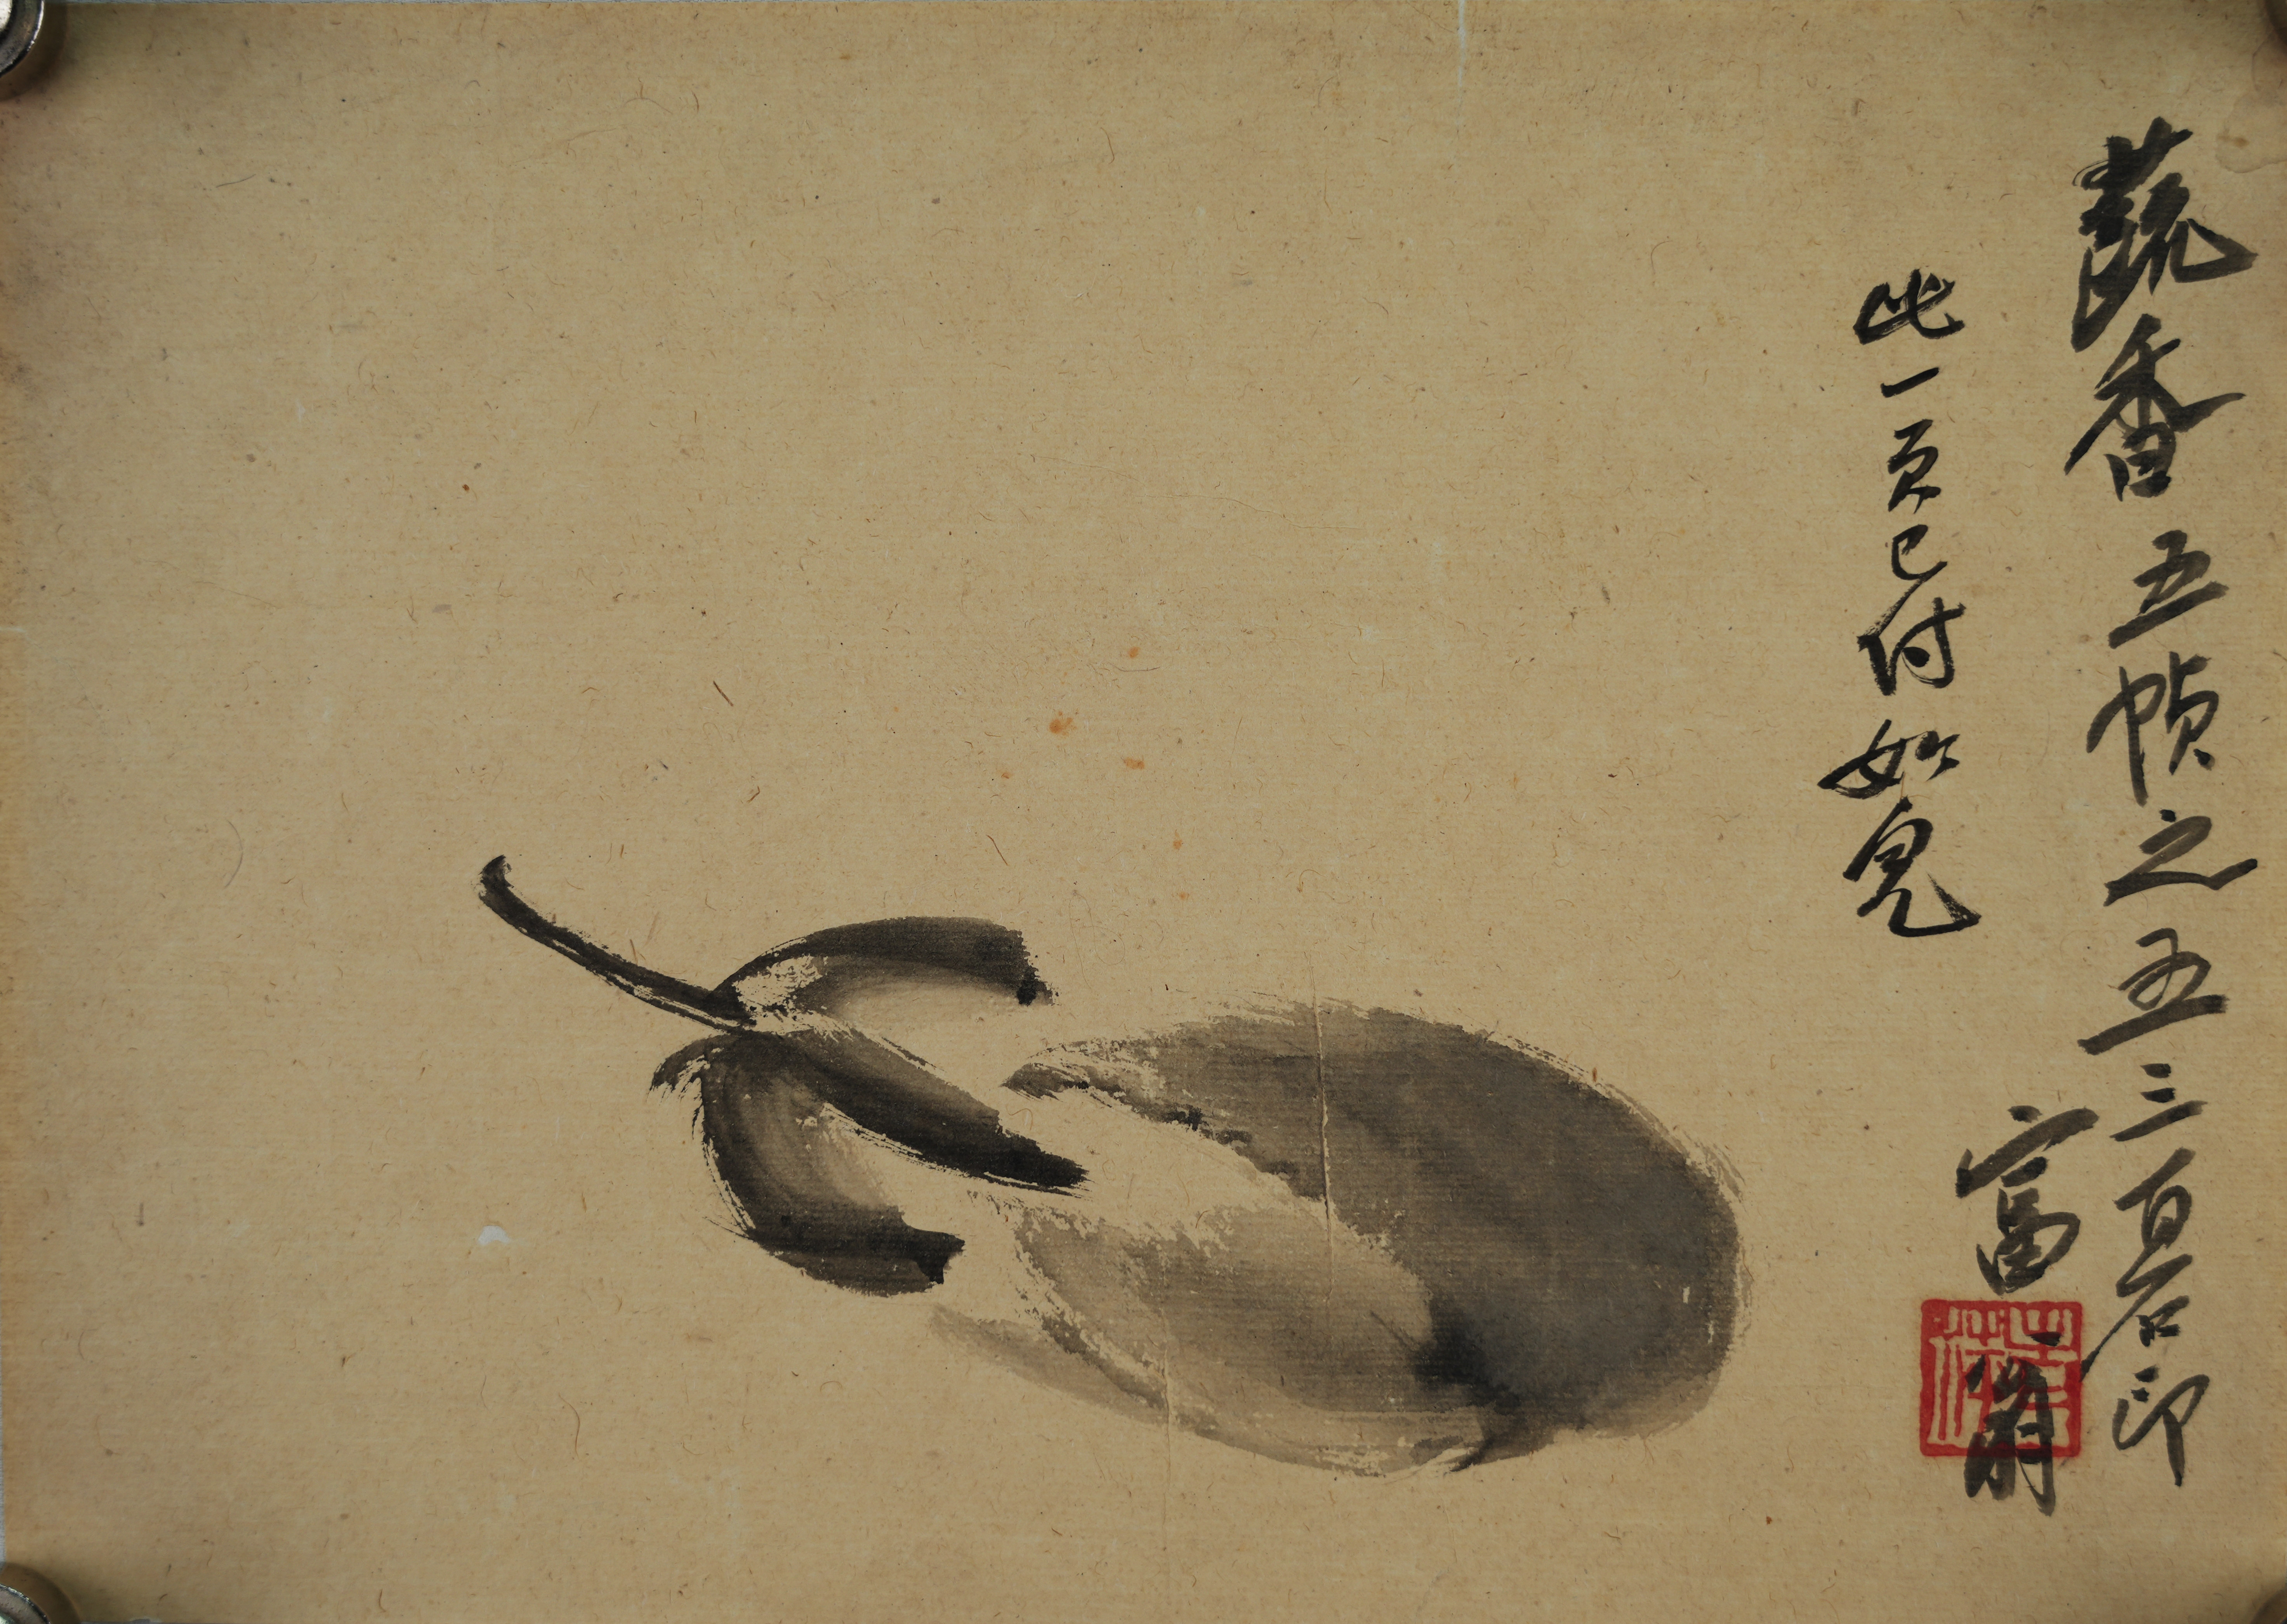 蔬香五帧之五三百石印
富翁
此一页已付如儿